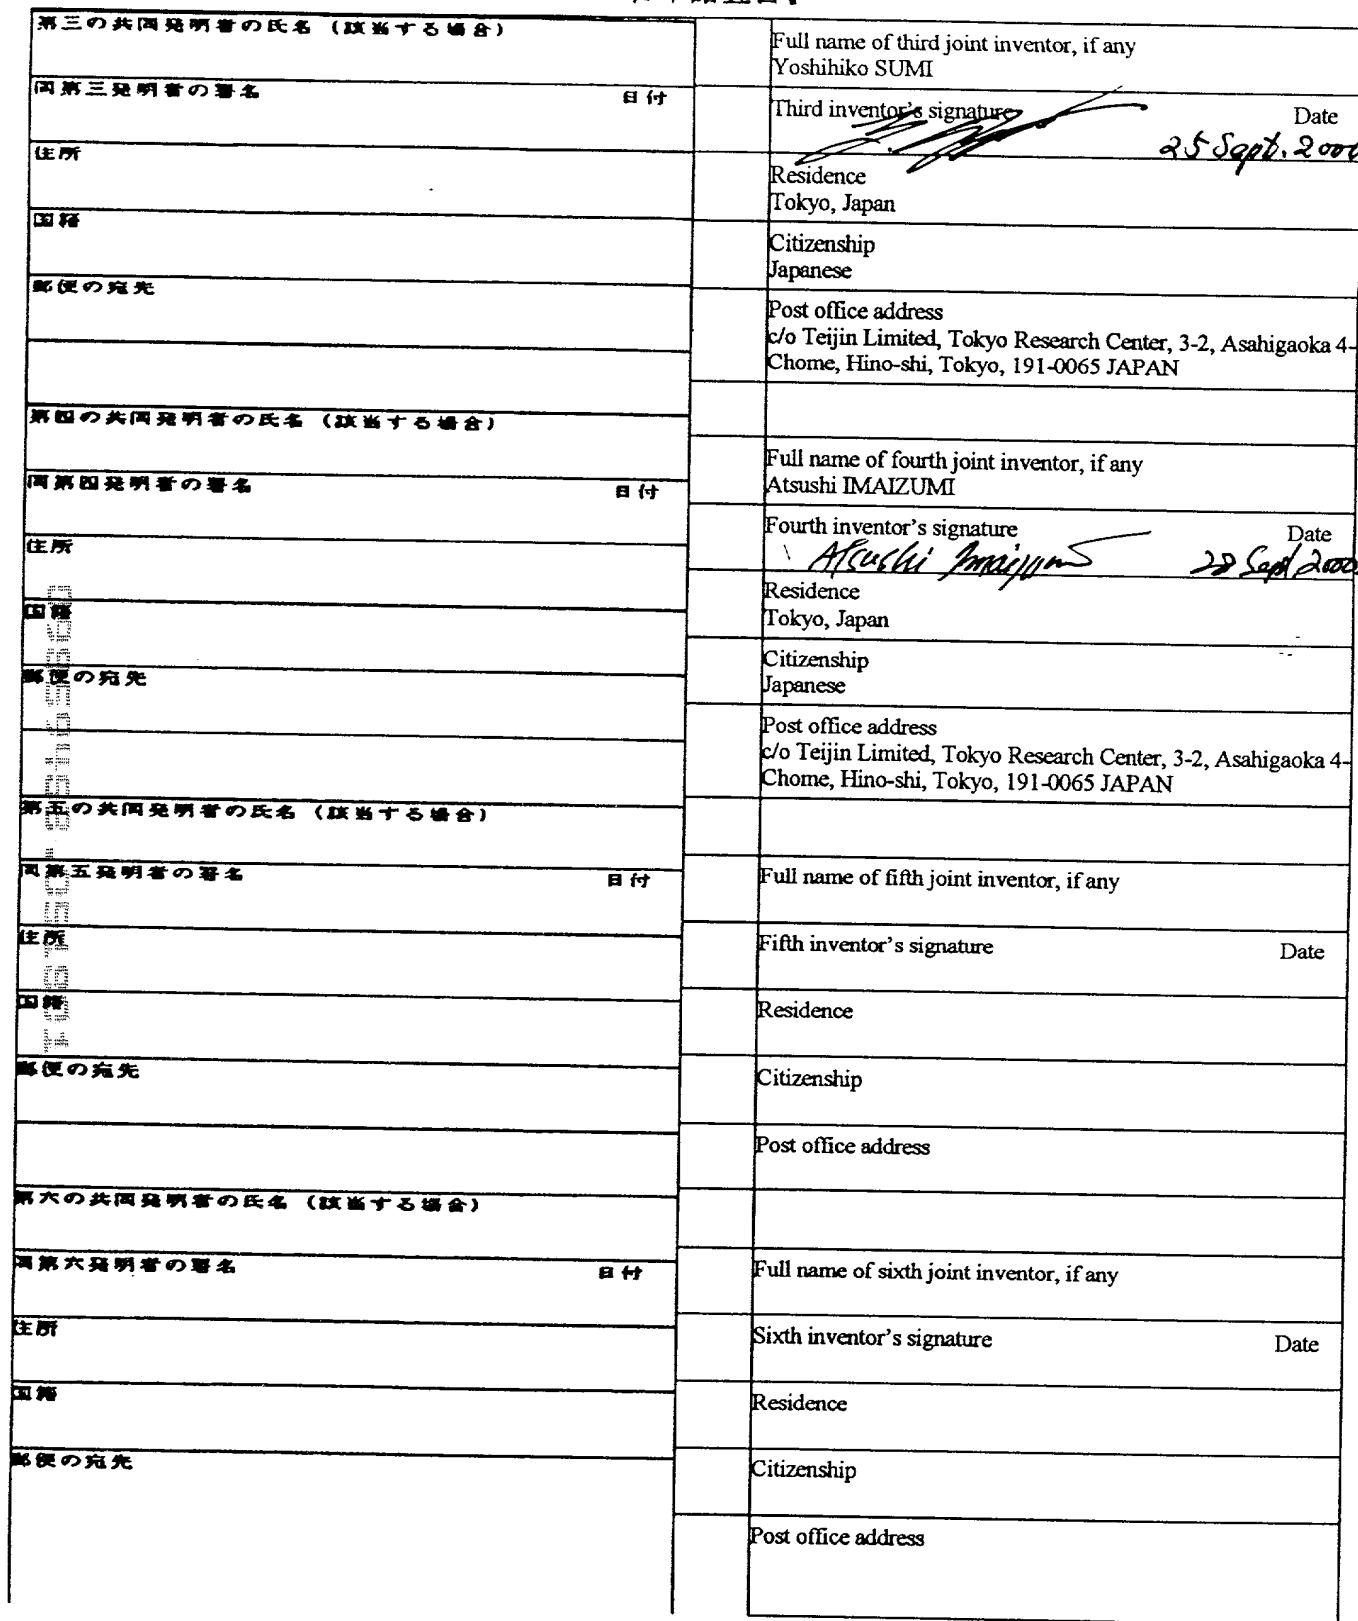 第三の共同発明者の氏名（該当する場合）
同第三発明者の署名 日付
住所
国籍
郵便の宛先
第四の共同発明者の氏名（該当する場合）
同第四発明者の署名 日付
住所
国籍
郵便の宛先
第五の共同発明者の氏名（該当する場合）
同第五発明者の署名 日付
住所
国籍
郵便の宛先
第六の共同発明者の氏名（該当する場合）
同第六発明者の署名 日付
住所
国籍
郵便の宛先
Full name of third joint inventor, if any
Yoshihiko SUMI
Third inventor's signature Date
25 Sept. 2000
Residence
Tokyo, Japan
Citizenship
Japanese
Post office address
c/o Teijin Limited, Tokyo Research Center, 3-2, Asahigaoka 4-
Chome, Hino-shi, Tokyo, 191-0065 JAPAN
Full name of fourth joint inventor, if any
Atsushi IMAIZUMI
Fourth inventor's signature Date
Atsushi Imaizumi 28 Sept 2000
Residence
Tokyo, Japan
Citizenship
Japanese
Post office address
c/o Teijin Limited, Tokyo Research Center, 3-2, Asahigaoka 4-
Chome, Hino-shi, Tokyo, 191-0065 JAPAN
Full name of fifth joint inventor, if any
Fifth inventor's signature Date
Residence
Citizenship
Post office address
Full name of sixth joint inventor, if any
Sixth inventor's signature Date
Residence
Citizenship
Post office address